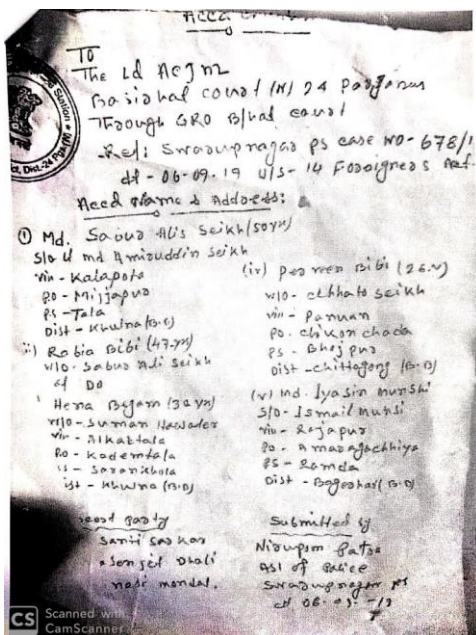 TO
The Ld ACJM
Basirhat court (N) 24 Parganas
Through GRO B/hat court
Ref: Swarupnagar ps case NO- 678/1
dt - 06-09-19 U/S - 14 Foreigners Act
Accd Name & Address:
① Md. Sabur Alis Seikh (50 yrs)
S/o Lt md Amiruddin Seikh
vill - Kalapota
P.O - Mijjapur
PS - Tala
Dist - Khulna (B.D)
ii) Rabia Bibi (47-yrs)
W/o - Sabur Ali Seikh
of Do
Hena Begam (30 yrs)
W/o - Suman Hawlader
vill - Alkattala
P.o - Kademtala
PS - Sarankhola
ist - Khulna (B.D)
(iv) Parveen Bibi (26.y)
W/O - Chhato Seikh
vill - Panuan
PO. Chikonchada
PS - Bhojpur
Dist - Chittagong (B.D)
(v) Md. Iyasin Munshi
S/o - Ismail Munsi
vill - Rajapur
Po - Amaragachhiya
PS - Ramda
Dist - Bagerhat (B.D)
Party
Santi Sarkar
senjit Dhali
mondal.
Submitted by
Nirupom Patra
ASI of Police
Swarupnagar ps
dt 06.09.-19
CS Scanned with
CamScanner
Station
Dist.-24 Pgs (N)